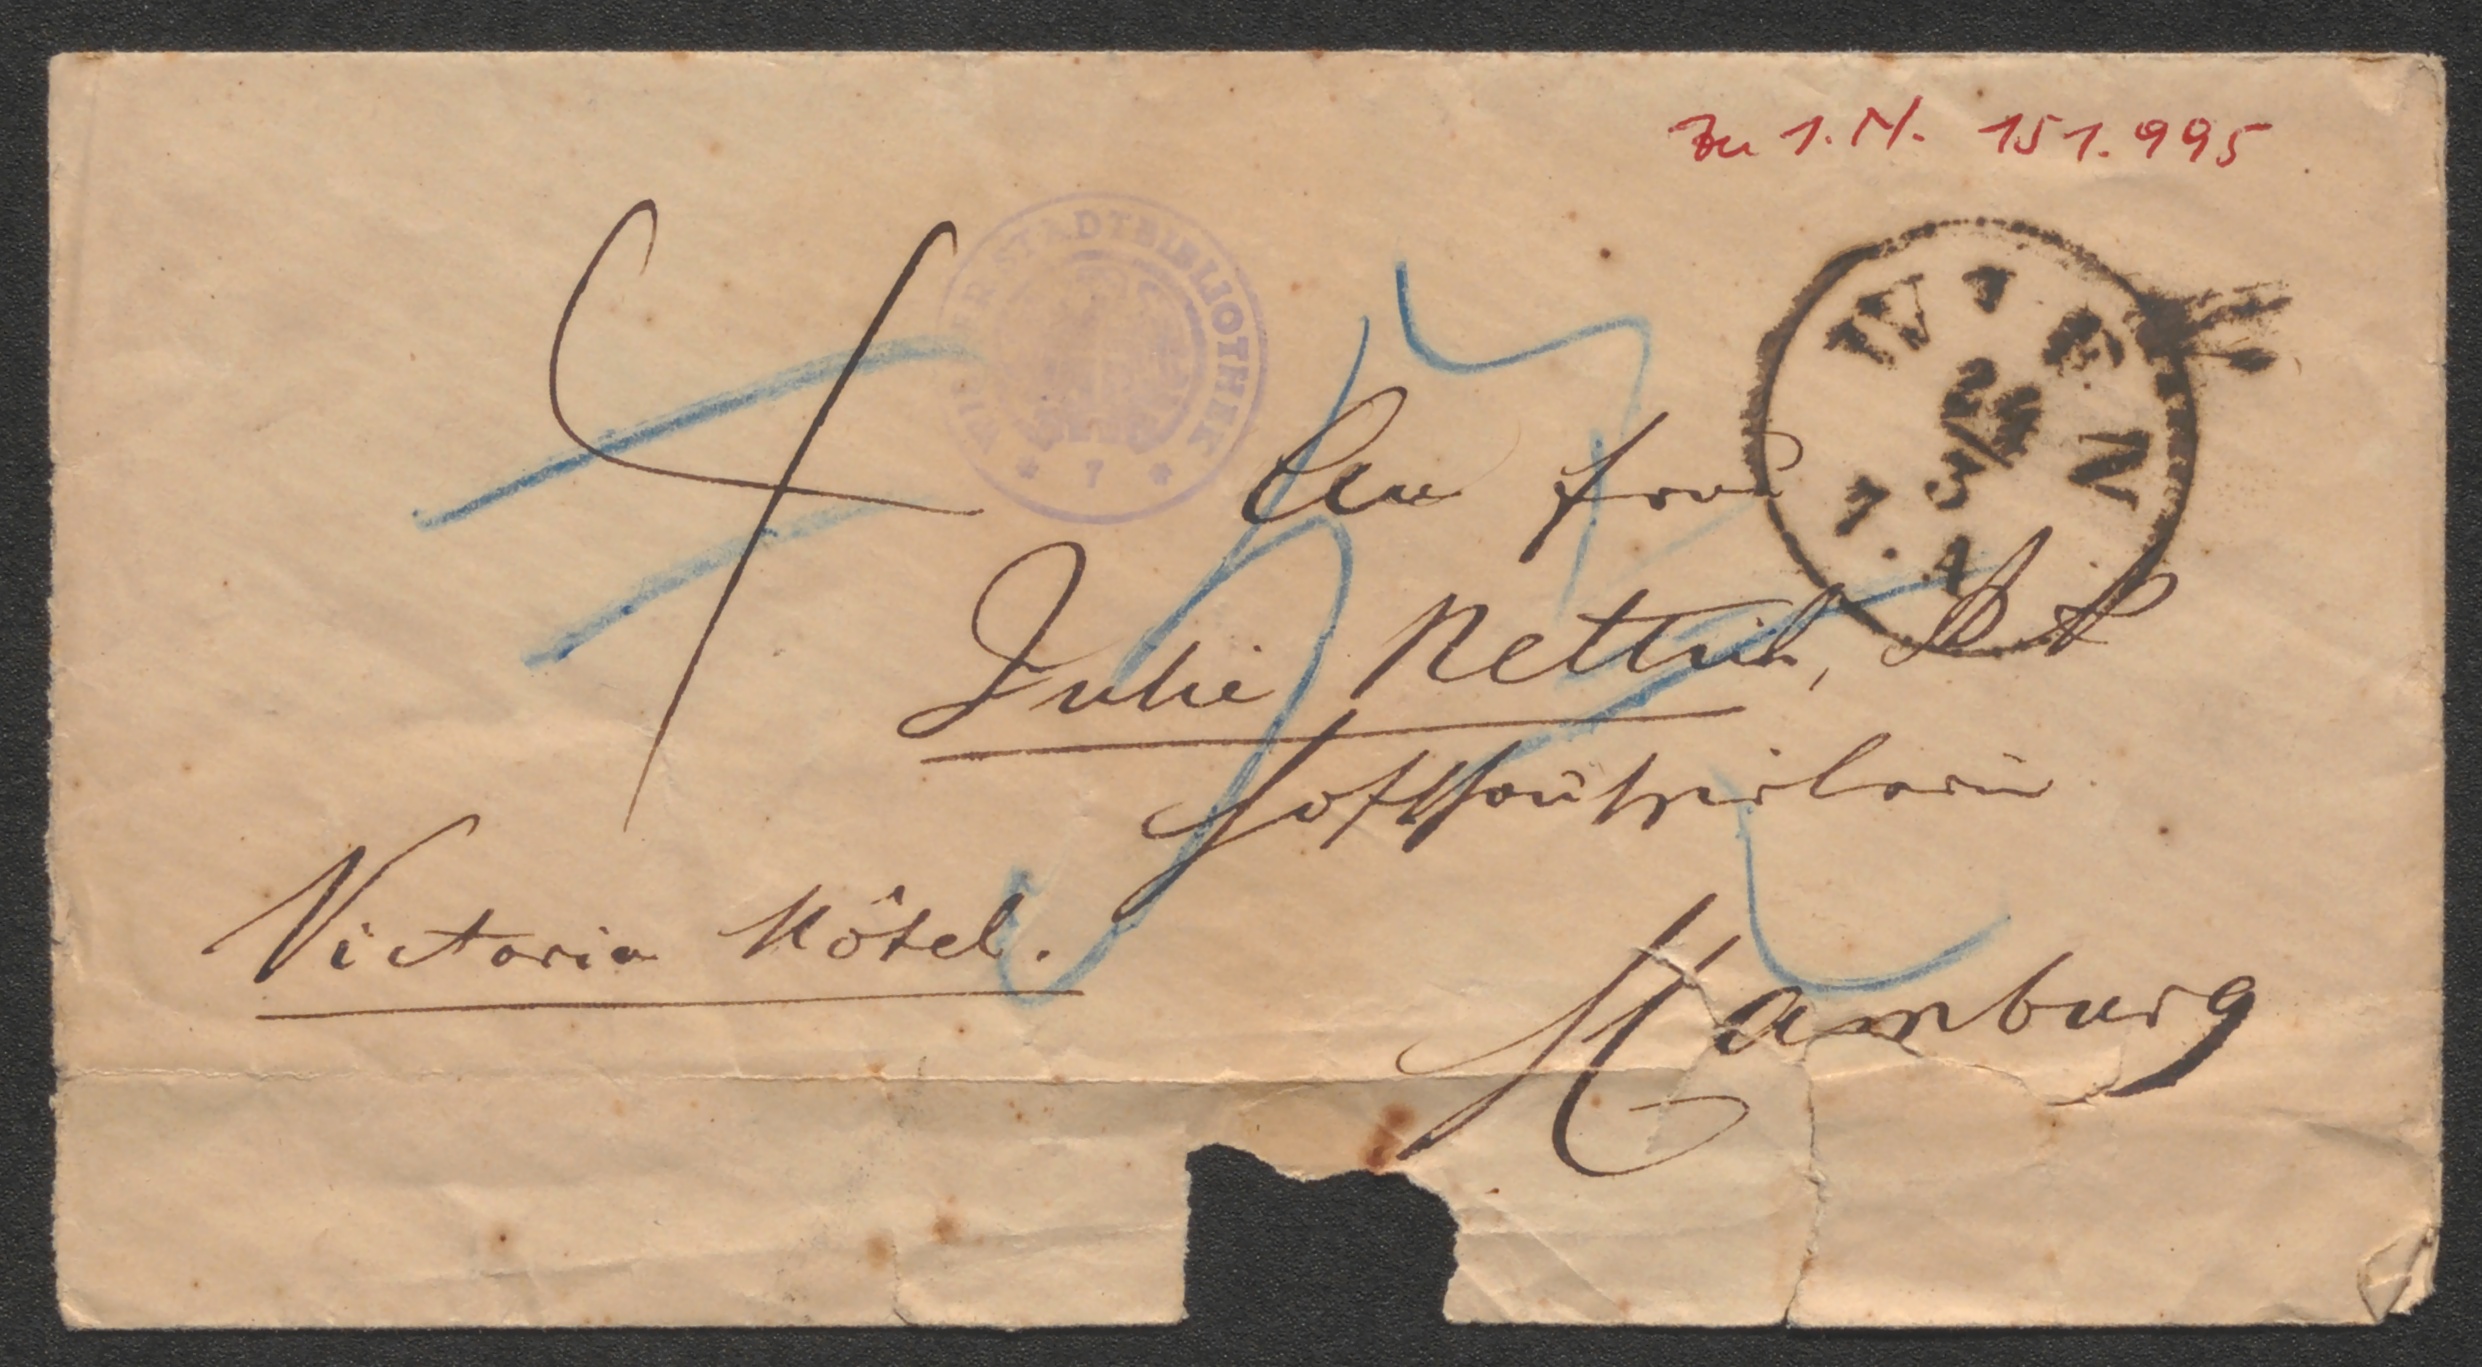 Zu I.N. 151.995
WIENER STADTBIBLIOTHEK
* 7 *
WIEN
7. A
An Frau
Julie Rettich, K K
Hofschauspielerin
Victoria Hôtel.
Hamburg